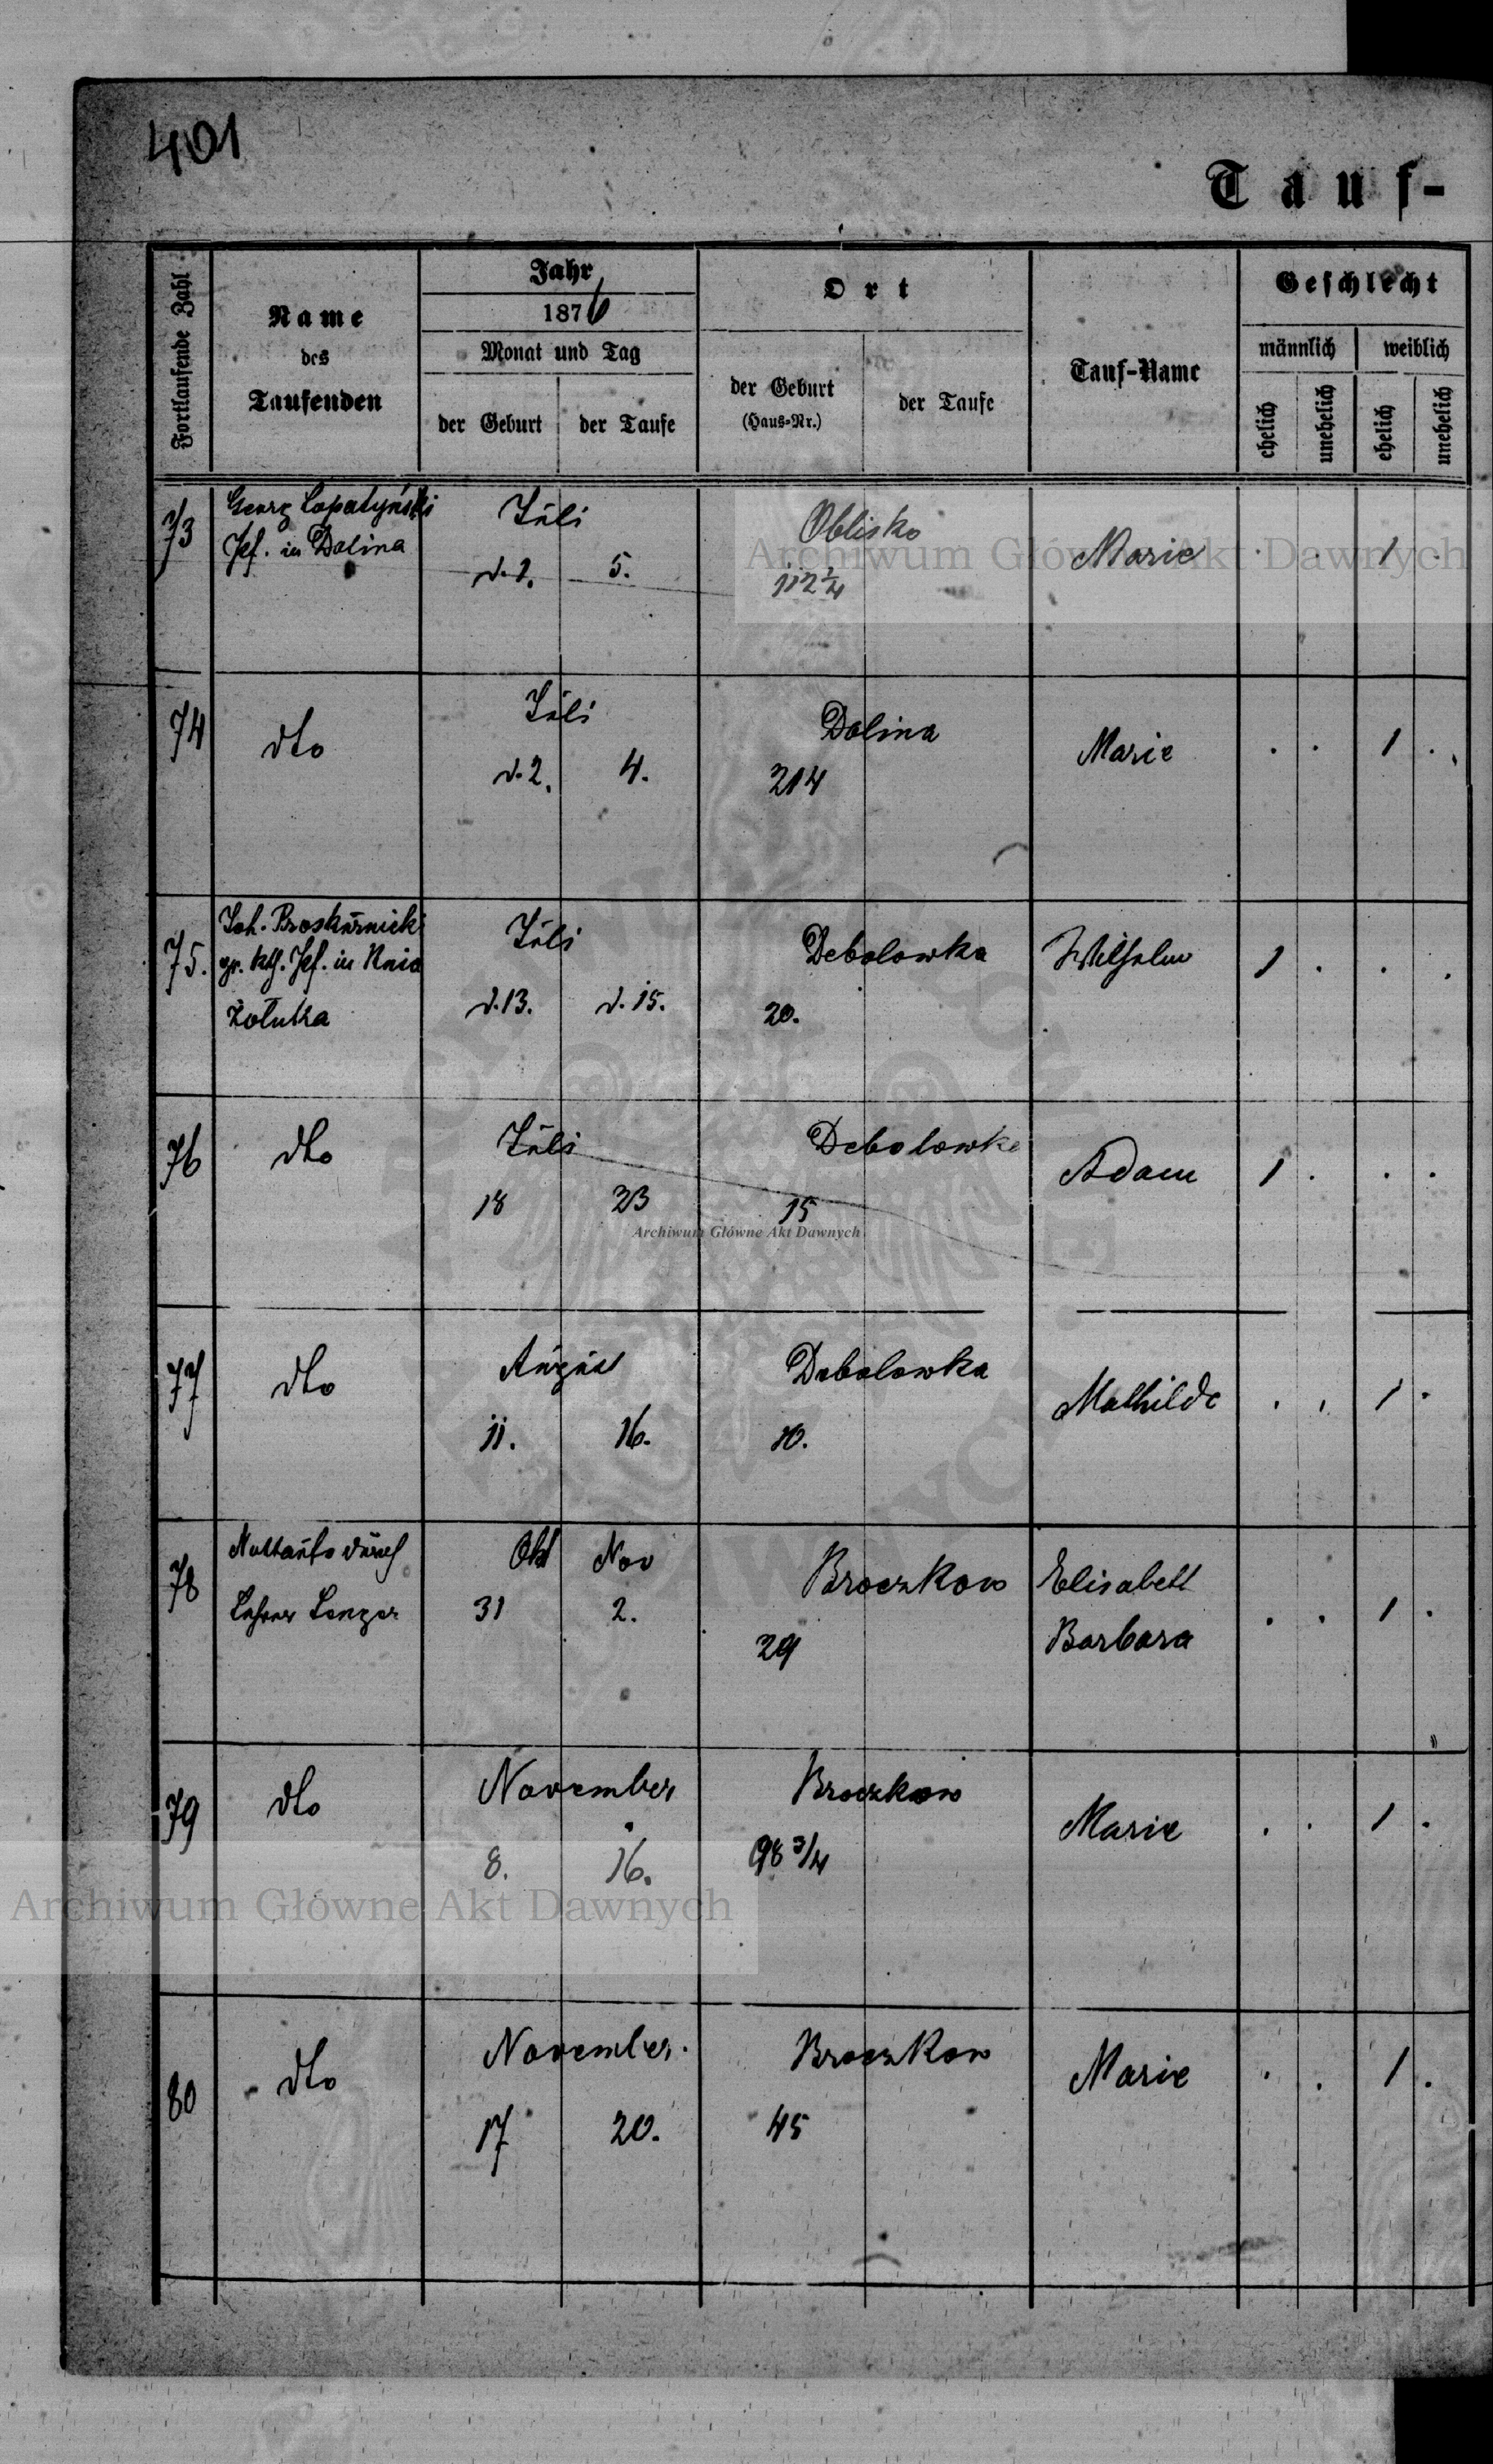 401
Tauf-
Fortlaufende Zahl
Name
des
Taufenden
Jahr
1876
Monat und Tag
der Geburt
der Taufe
Ort
der Geburt
(Haus-Nr.)
der Taufe
Tauf-Name
Geschlecht
männlich
weiblich
ehelich
unehelich
ehelich
unehelich
73
Georg Lopatyński
Pf. in Dolina
Juli
d. 1.
5.
Oblisko
112
Marie
1
74
dto
Juli
d. 2.
4.
Dolina
214
Marie
1
75.
Joh. Proskurnicki
gr. kth. Pf. in Knia
żołuka
Juli
d. 13.
d. 15.
Debolowka
20.
Wilhelm
1
76
dto
Juli
18
23
Debolowka
15
Adam
1
77
dto
August
11.
16.
Debolowka
10.
Mathilde
1
78
Nottaufe durch
Lehrer
Okt
Nov
31
2.
Broczkow
29
Elisabett
Barbara
1
79
dto
November
8.
16.
Broczkow
98 3/4
Marie
1
80
dto
November.
17
20.
Broczkow
45
Marie
1
Archiwum Główne Akt Dawnych
Archiwum Główne Akt Dawnych
Archiwum Główne Akt Dawnych